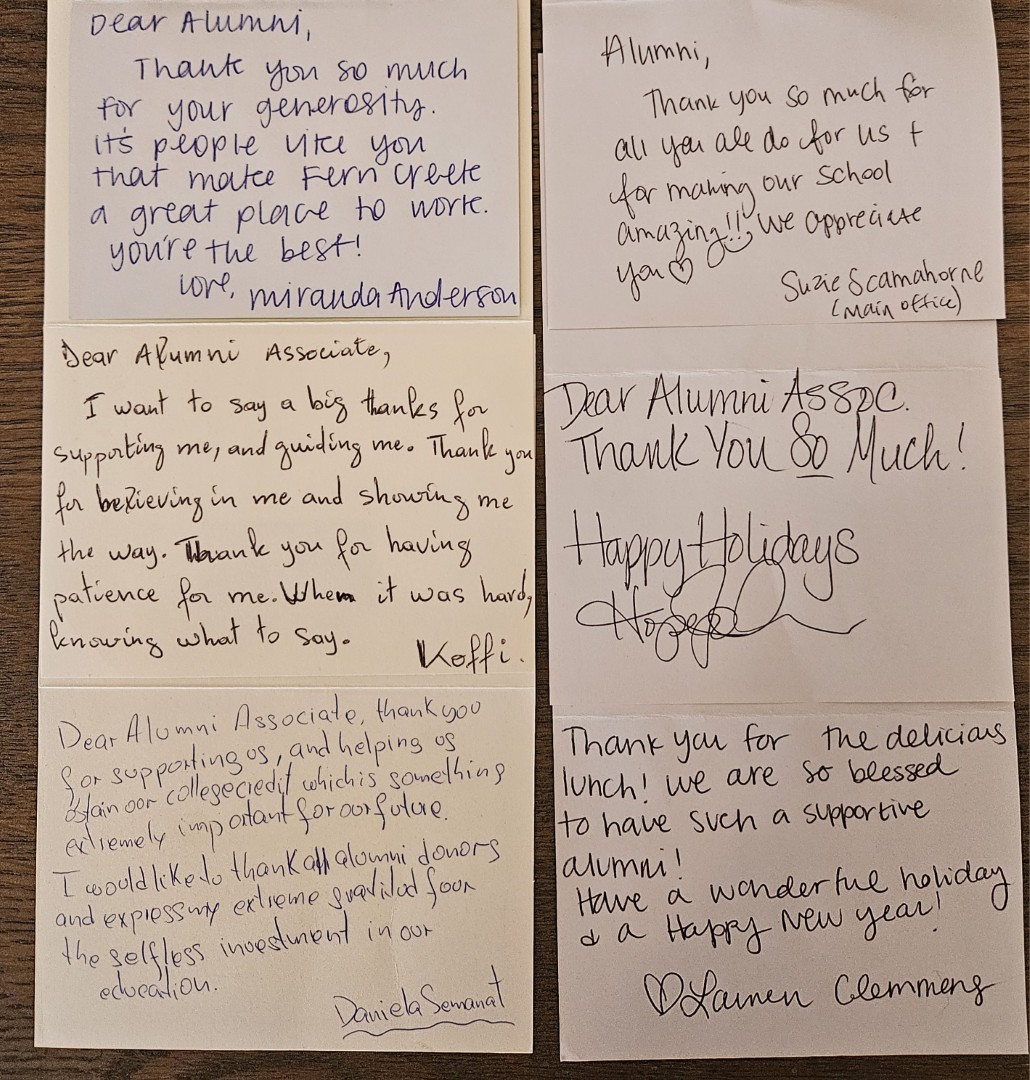 Dear Alumni,
Thank you so much
for your generosity.
it's people like you
that make Fern Creek
a great place to work.
you're the best!
love, miranda Anderson
Dear Alumni Associate,
I want to say a big thanks for
supporting me, and guiding me. Thank you
for believing in me and showing me
the way. Thank you for having
patience for me. When it was hard,
knowing what to say.
Koffi.
Dear Alumni Associate, thank you
for supporting us, and helping us
obtain our college credit which is something
extremely important for our future.
I would like to thank all alumni donors
and express my extreme gratitud four
the selfless investment in our
education.
Daniela Semanat
Alumni,
Thank you so much for
all you all do for us +
for making our school
amazing!! We appreciate
you ♡
Suzie Scamahorne
(main office)
Dear Alumni Assoc.
Thank You So Much!
Happy Holidays
Thank you for the delicious
lunch! we are so blessed
to have such a supportive
alumni!
Have a wonderful holiday
& a Happy New year!
♡ Lauren Clemmens